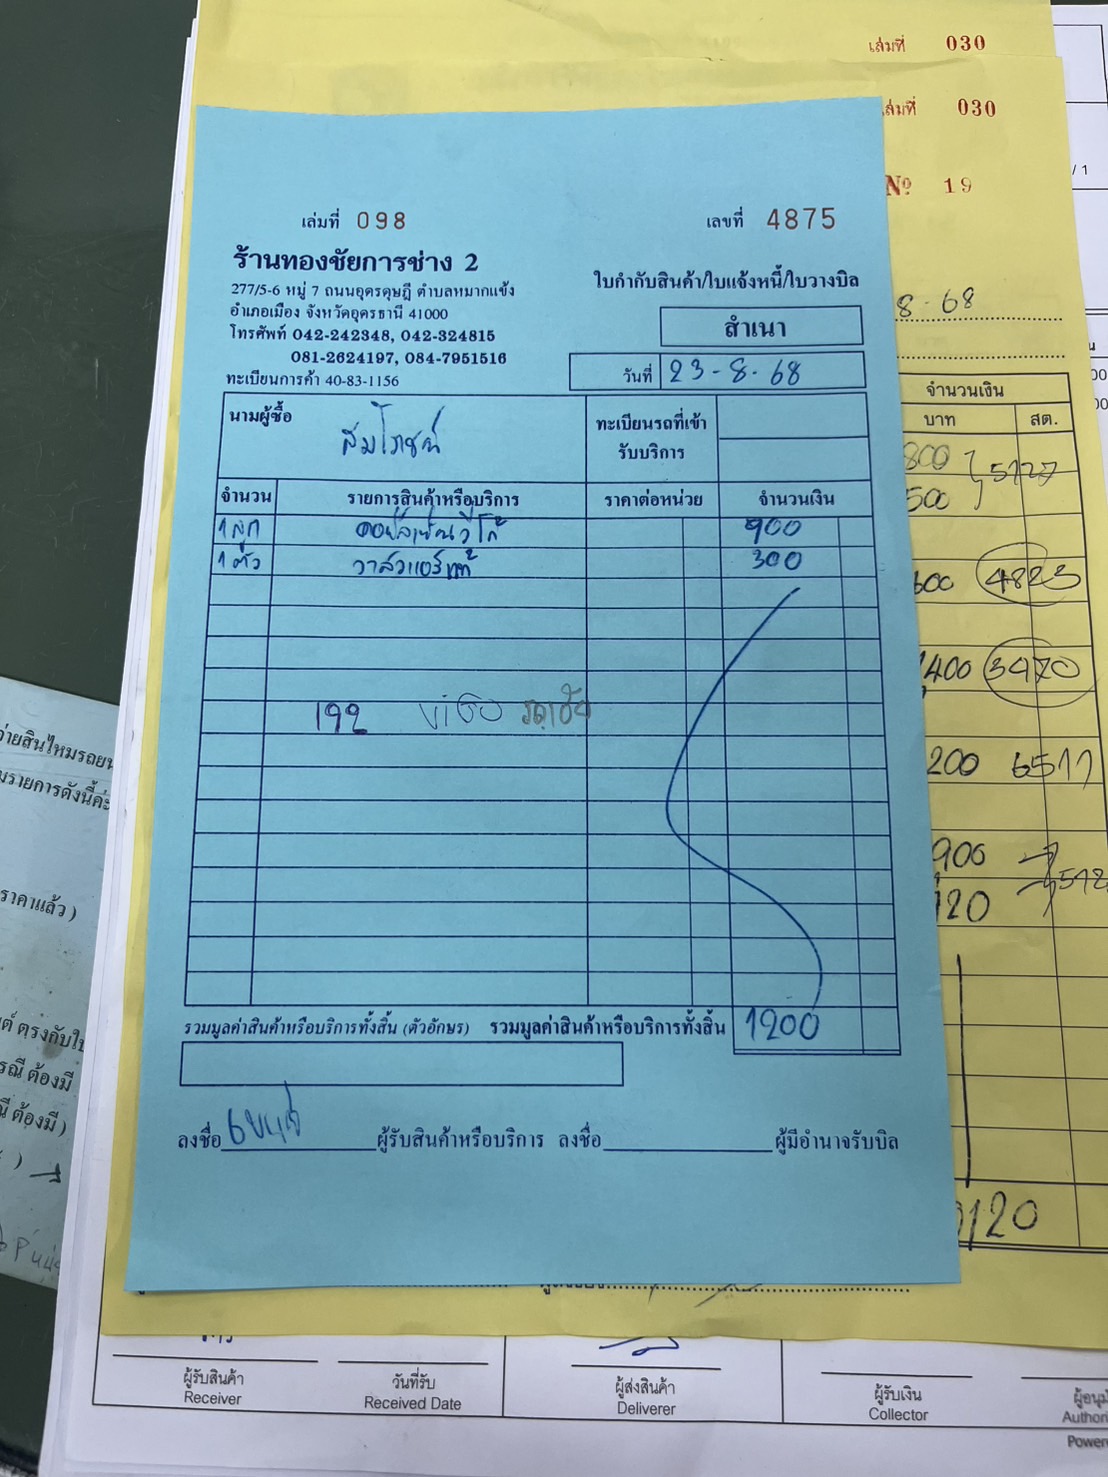 เล่มที่ 030
เล่มที่ 030
Nº 19
/ 1
เล่มที่ 098
เลขที่ 4875
ร้านทองชัยการช่าง 2
277/5-6 หมู่ 7 ถนนอุดรดุษฎี ตำบลหมากแข้ง
อำเภอเมือง จังหวัดอุดรธานี 41000
โทรศัพท์ 042-242348, 042-324815
081-2624197, 084-7951516
ทะเบียนการค้า 40-83-1156
ใบกำกับสินค้า/ใบแจ้งหนี้/ใบวางบิล
สำเนา
วันที่ 23-8-68
8-68
นามผู้ซื้อ สมโภชน์
ทะเบียนรถที่เข้า
รับบริการ
จำนวน รายการสินค้าหรือบริการ ราคาต่อหน่วย จำนวนเงิน
1 ลูก 900
1 ตัว วาล์วแอร์แท้ 300
192 vigo
รวมมูลค่าสินค้าหรือบริการทั้งสิ้น (ตัวอักษร) รวมมูลค่าสินค้าหรือบริการทั้งสิ้น 1200
ลงชื่อ ผู้รับสินค้าหรือบริการ ลงชื่อ ผู้มีอำนาจรับบิล
จำนวนเงิน
บาท สต.
800
500
600 4823
400 3970
200 6511
900
120
120
จ่ายสินไหมรถยน
มรายการดังนี้ค่ะ
ราคาแล้ว )
ต์ ตรงกับใบ
รณี ต้องมี
นี ต้องมี )
ผู้รับสินค้า
Receiver
วันที่รับ
Received Date
ผู้ส่งสินค้า
Deliverer
ผู้รับเงิน
Collector
ผู้อนุม
Author
Power